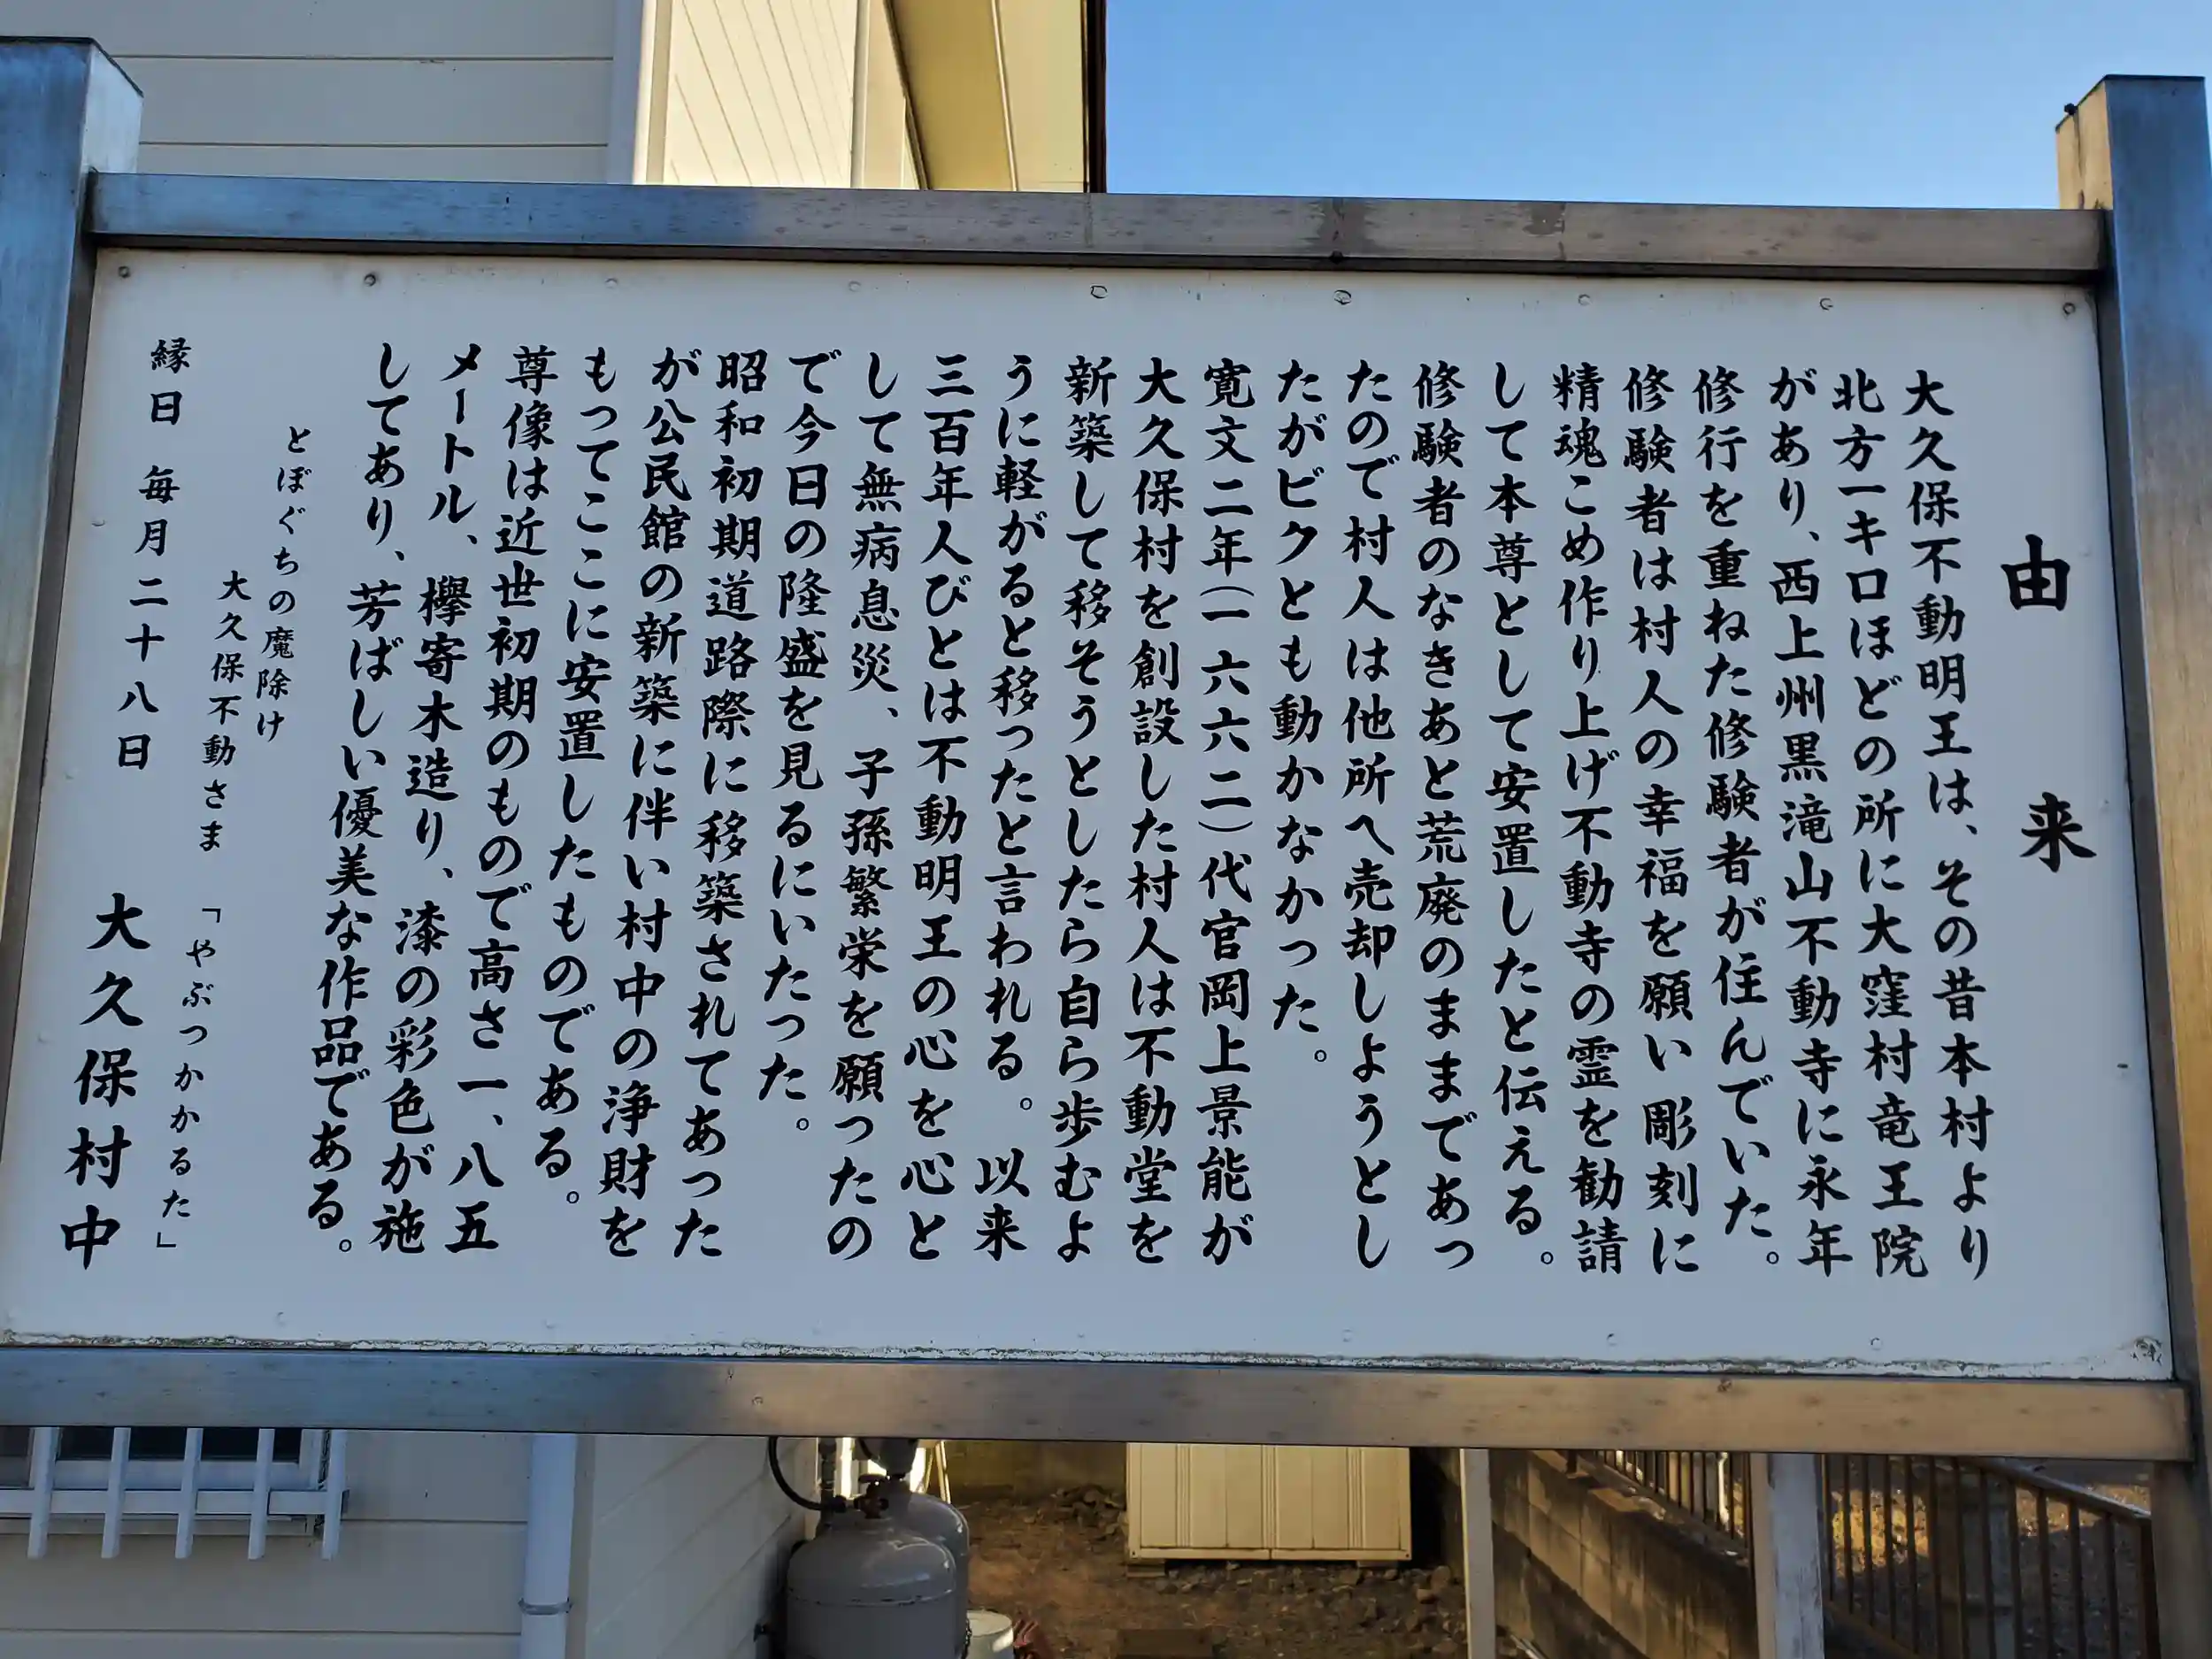 由来
大久保不動明王は、その昔本村より
北方一キロほどの所に大窪村竜王院
があり、西上州黒滝山不動寺に永年
修行を重ねた修験者が住んでいた。
修験者は村人の幸福を願い彫刻に
精魂こめ作り上げ不動寺の霊を勧請
して本尊として安置したと伝える。
修験者のなきあと荒廃のままであっ
たので村人は他所へ売却しようとし
たがビクとも動かなかった。
寛文二年(一六六二)代官岡上景能が
大久保村を創設した村人は不動堂を
新築して移そうとしたら自ら歩むよ
うに軽がると移ったと言われる。以来
三百年人びとは不動明王の心を心と
して無病息災、子孫繁栄を願ったの
で今日の隆盛を見るにいたった。
昭和初期道路際に移築されてあった
が公民館の新築に伴い村中の浄財を
もってここに安置したものである。
尊像は近世初期のもので高さ一、八五
メートル、欅寄木造り、漆の彩色が施
してあり、芳ばしい優美な作品である。
とぼぐちの魔除け
大久保不動さま
「やぶつかかるた」
縁日 毎月二十八日
大久保村中